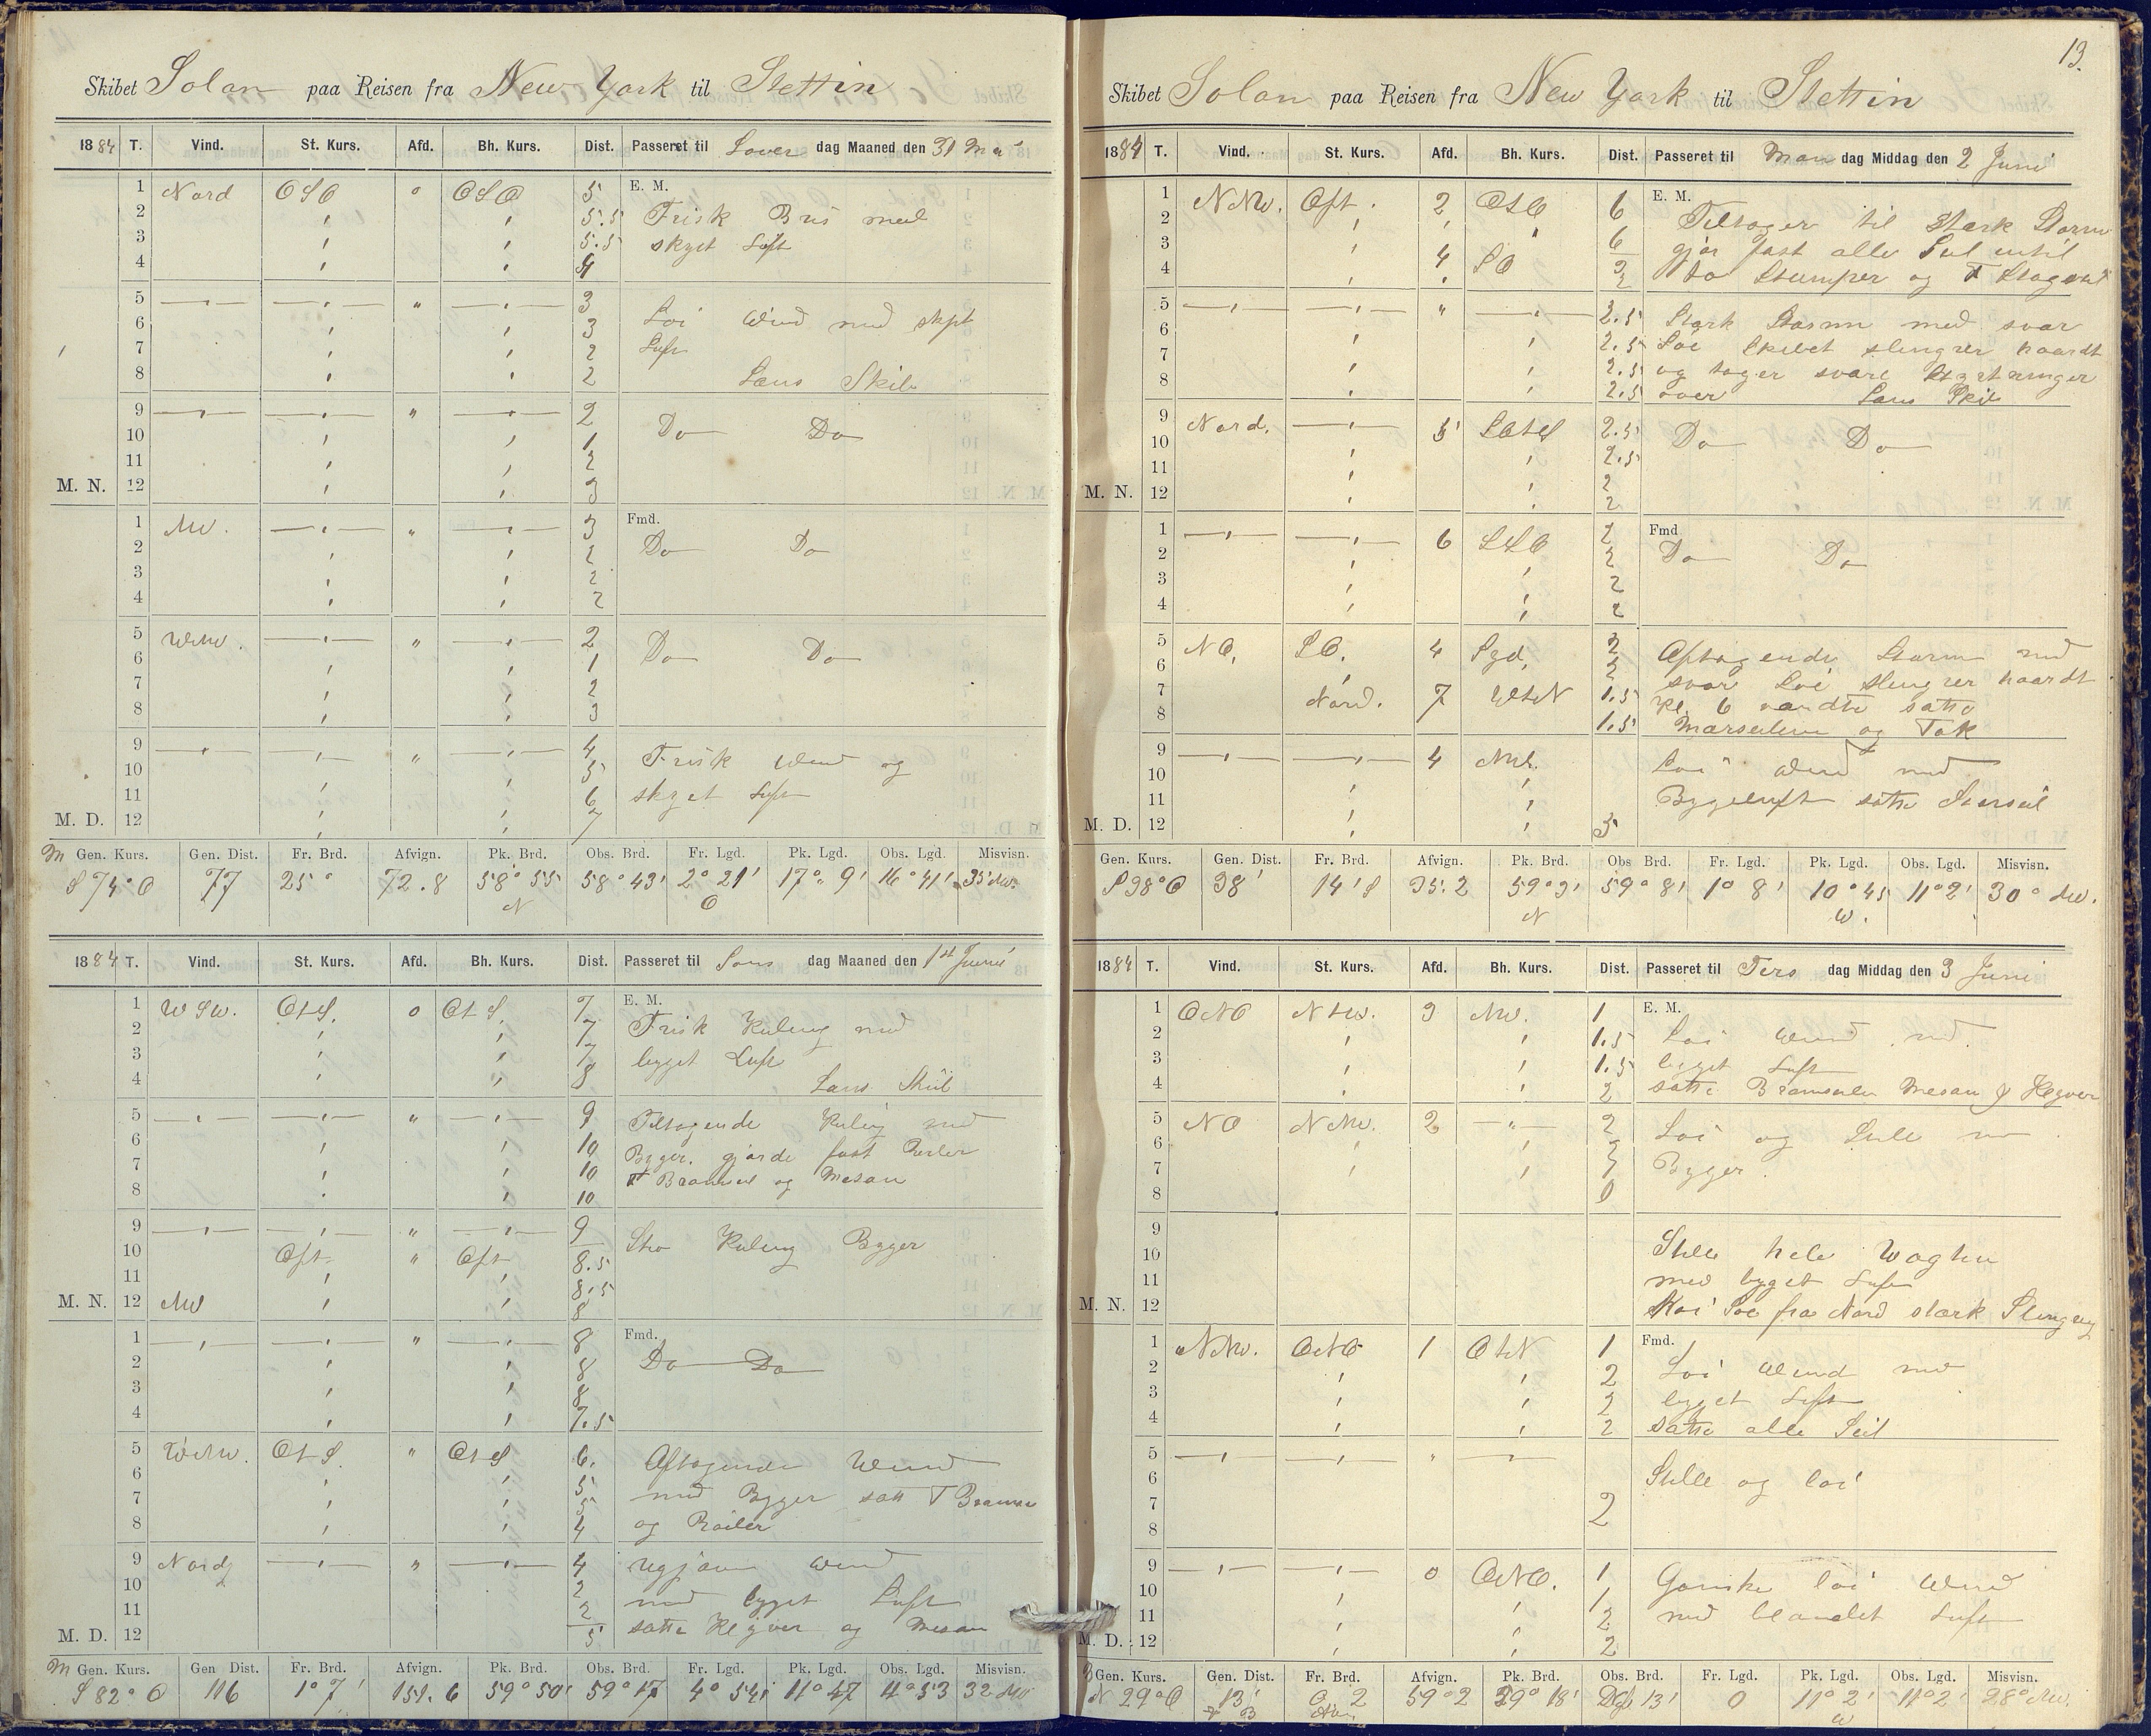 Skibet Solan paa Reisen fra New York til Stettin
1884 T. Vind. St. Kurs. Afd. Bh. Kurs. Dist. Passeret til Löver dag Maaned den 31 Mai
1 Nord OSO 0 OSO 5 E. M.
2 " " 5.5 Frisk Bris med
3 " " 5.5 skyet Luft
4 " " 4
5 — " — — " — " — " — 3 Loi Vind med skyet
6 " " 3 Luft
7 " " 2
8 " " 2 Læns Skib
9 — " — — " — " — " — 2 Do Do
10 " " 1
11 " " 2
M. N. 12 " " 3
1 NW. — " — " — " — 3 Fmd.
2 " " 2 Do Do
3 " " 2
4 " " 2
5 WNW. — " — " — " — 2 Do Do
6 " " 1
7 " " 2
8 " " 3
9 — " — — " — " — " — 4
10 " " 5 Frisk Vind og
11 " " 6 skyet Luft
M. D. 12 " " 7
M Gen. Kurs. Gen. Dist. Fr. Brd. Afvign. Pk. Brd. Obs. Brd. Fr. Lgd. Pk. Lgd. Obs. Lgd. Misvisn.
S 74° O 77 25° 72.8 58° 55' N 58° 43' 2° 21' O 17° 9' 16° 41' 35° NW.
1884 T. Vind. St. Kurs. Afd. Bh. Kurs. Dist. Passeret til Søns dag Maaned den 1st Juni
1 WSW. OtS. 0 OtS. 7 E. M.
2 " " 7 Frisk Kuling med
3 " " 7 bygget Luft
4 " " 8 Læns Skib
5 — " — — " — " — " — 9 Tiltagende Kuling med
6 " " 10 Byger. gjorde fast Røiler
7 " " 10 F Bramseil og Mesan
8 " " 10
9 — " — — " — " — " — 9
10 Ost " Ost 8.5 Stiv Kuling Bygger
11 " " 8.5
M. N. 12 NW " " 8
1 — " — — " — " — " — 8 Fmd.
2 " " 8 Do Do
3 " " 8
4 " " 7.5
5 WNW. OtS. " OtS 6. Aftagende Vind
6 " " 5 med Bygger satt F Bramse
7 " " 5 og Røiler
8 " " 4
9 Nordl — " — " — " — 4 ugjævn Vind
10 2 med bygget Luft
11 2 satte Klyver og Mesan
M. D. 12 5
M Gen. Kurs. Gen Dist. Fr. Brd. Afvign. Pk. Brd. Obs. Brd. Fr. Lgd. Pk. Lgd. Obs. Lgd. Misvisn.
S 82° O 116 1° 7' 151.6 59° 50' 59° 17 4° 54' 11° 47 11° 53 32 NW
13.
Skibet Solan paa Reisen fra New York til Stettin
1884 T. Vind. St. Kurs. Afd. Bh. Kurs. Dist. Passeret til Man dag Middag den 2 Juni
1 NNW. Ost. 2 OtS 6 E. M.
2 " " " Tiltager til stærk Storm
3 " 4 SO 6 gjør fast alle Seil intil
4 " " 2 to Stumper og F Stagseil
5 — " — — " — " — " — 2.5 Stærk Storm med svær
6 " " 2.5 Søe Skibet slingrer haardt
7 " " 2.5 og tager svare Styrtninger
8 " " 2.5 over Læns Skib
9 Nord. — " — 5 SOtS 2.5 Do Do
10 " " 2.5
11 " " 2
M. N. 12 " " 2
1 — " — — " — 6 SSO 2 Fmd
2 " " 2 Do Do
3 " " 2
4 " " 2
5 NO. SO. 4 Syd. 2 Aftagende Storm med
6 " 2 svær Søe slingrer haardt
7 Nord. 7 WtN 1.5 Kl. 6 vendte satte
8 1.5 Mærseilene og Fok
9 — " — — " — 4 NW.
10 " " Loi Vind med
11 " " Byggeluft satte Storseil
M. D. 12 " " 5
Gen. Kurs. Gen. Dist. Fr. Brd. Afvign. Pk. Brd. Obs Brd. Fr. Lgd. Pk. Lgd. Obs. Lgd. Misvisn.
S 38° O 38' 14' S 35.2 59° 3' N 59° 8' 1° 8' 10° 45 W. 11° 2' 30° NW.
1884 T. Vind. St. Kurs. Afd. Bh. Kurs. Dist. Passeret til Tirs dag Middag den 3 Juni
1 ONO NtW. 3 NW. 1 E. M.
2 " " 1.5 Loi Vind med
3 " " 1.5 bygget Luft
4 " " 2 satte Bramseiler Mesan & Klyver
5 NO NNW. 2 — " — 2 Loi og Stille med
6 2 Bygger.
7 " " 1
8 0
9
10 Stille hele Wagten
11 med bygget Luft
M. N. 12 Høi Søe fra Nord stærk Slingring
1 NNW. ONO 1 OtN 1 Fmd.
2 " " 2 Loi Vind med
3 " " 2 bygget Luft
4 " " 2 satte alle Seil
5 — " — — " — " — " —
6 Stille og loi
7 2
8
9 — " — — " — 0 ONO. 1 Ganske loi Vind
10 " 1
11 " " 2 med blandet Luft
M. D. 12 " " 2
Gen. Kurs. Gen. Dist. Fr. Brd. Afvign. Pk. Brd. Obs. Brd. Fr. Lgd. Pk. Lgd. Obs. Lgd. Misvisn.
N 29° O 13' 2 59° 2 39° 18' 13' 0 11° 2' W 11° 2' 28° NW.